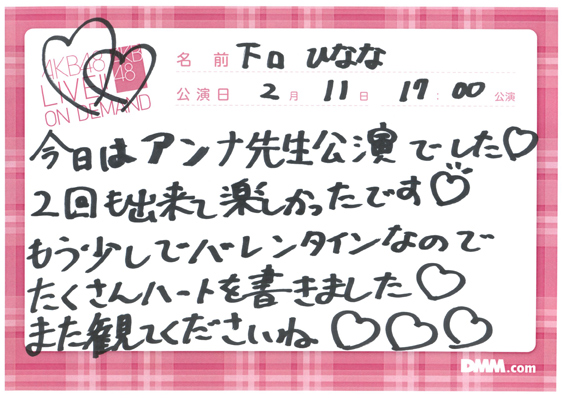 AKB48
LIVE!!
ON DEMAND
AKB
48
名前 下口 ひなな
公演日 2月 11日 17:00 公演
今日はアンナ先生公演でした♡
2回も出来て楽しかったです♡
もう少しでバレンタインなので
たくさんハートを書きました♡
また観てくださいね ♡♡♡
DMM.com